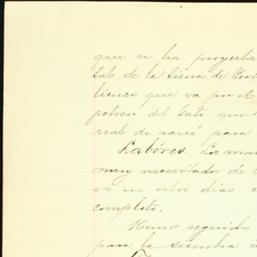 que se ha proyecta
Sal de la Sierra de
tienes que va por el
potrero del Gato que
real de aqui para
Labores. En mai
muy necesitados de
ve en estos dias
completo.
Hemos seguido
para la siembra